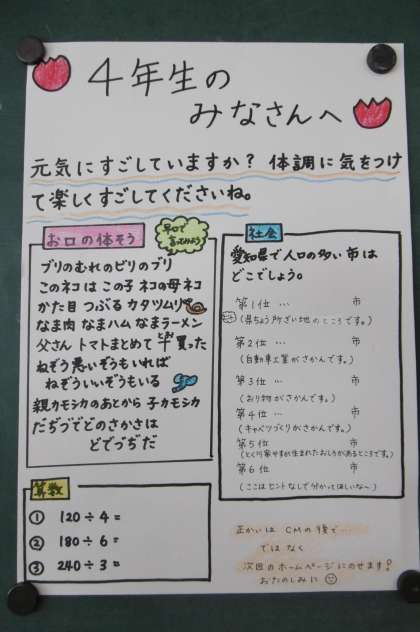 4年生の
みなさんへ
元気にすごしていますか? 体調に気をつけ
て楽しくすごしてくださいね。
お口の体そう
早口で
言ってみよう
ブリのむれのビリのブリ
このネコは この子ネコの母ネコ
かた目 つぶる カタツムリ
なま肉 なまハム なまラーメン
父さん トマトまとめて 買った
ねぞう悪いぞうもいれば
ねぞういいぞうもいる
親カモシカのあとから 子カモシカ
だぢづでどのさかさは
どでづぢだ
算数
① 120÷4=
② 180÷6=
③ 240÷3=
社会
愛知県で人口の多い市は
どこでしょう。
第1位 … 市
(県ちょう所ざい地のところです。)
第2位 … 市
(自動車工業がさかんです。)
第3位 … 市
(おり物がさかんです。)
第4位 … 市
(キャベツづくりがさかんです。)
第5位 市
(とく川家やすが生まれたおしろがあるところです。)
第6位 市
(ここはヒントなしで分かってほしいな〜)
正かいは CMの後で…
ではなく
次回のホームページにのせます!
おたのしみに